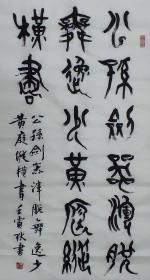 公孫劍器渾脫
舞逸少黃庭縱
橫書
公孫劍器渾脫舞逸少
黃庭縱橫書壬寅秋書